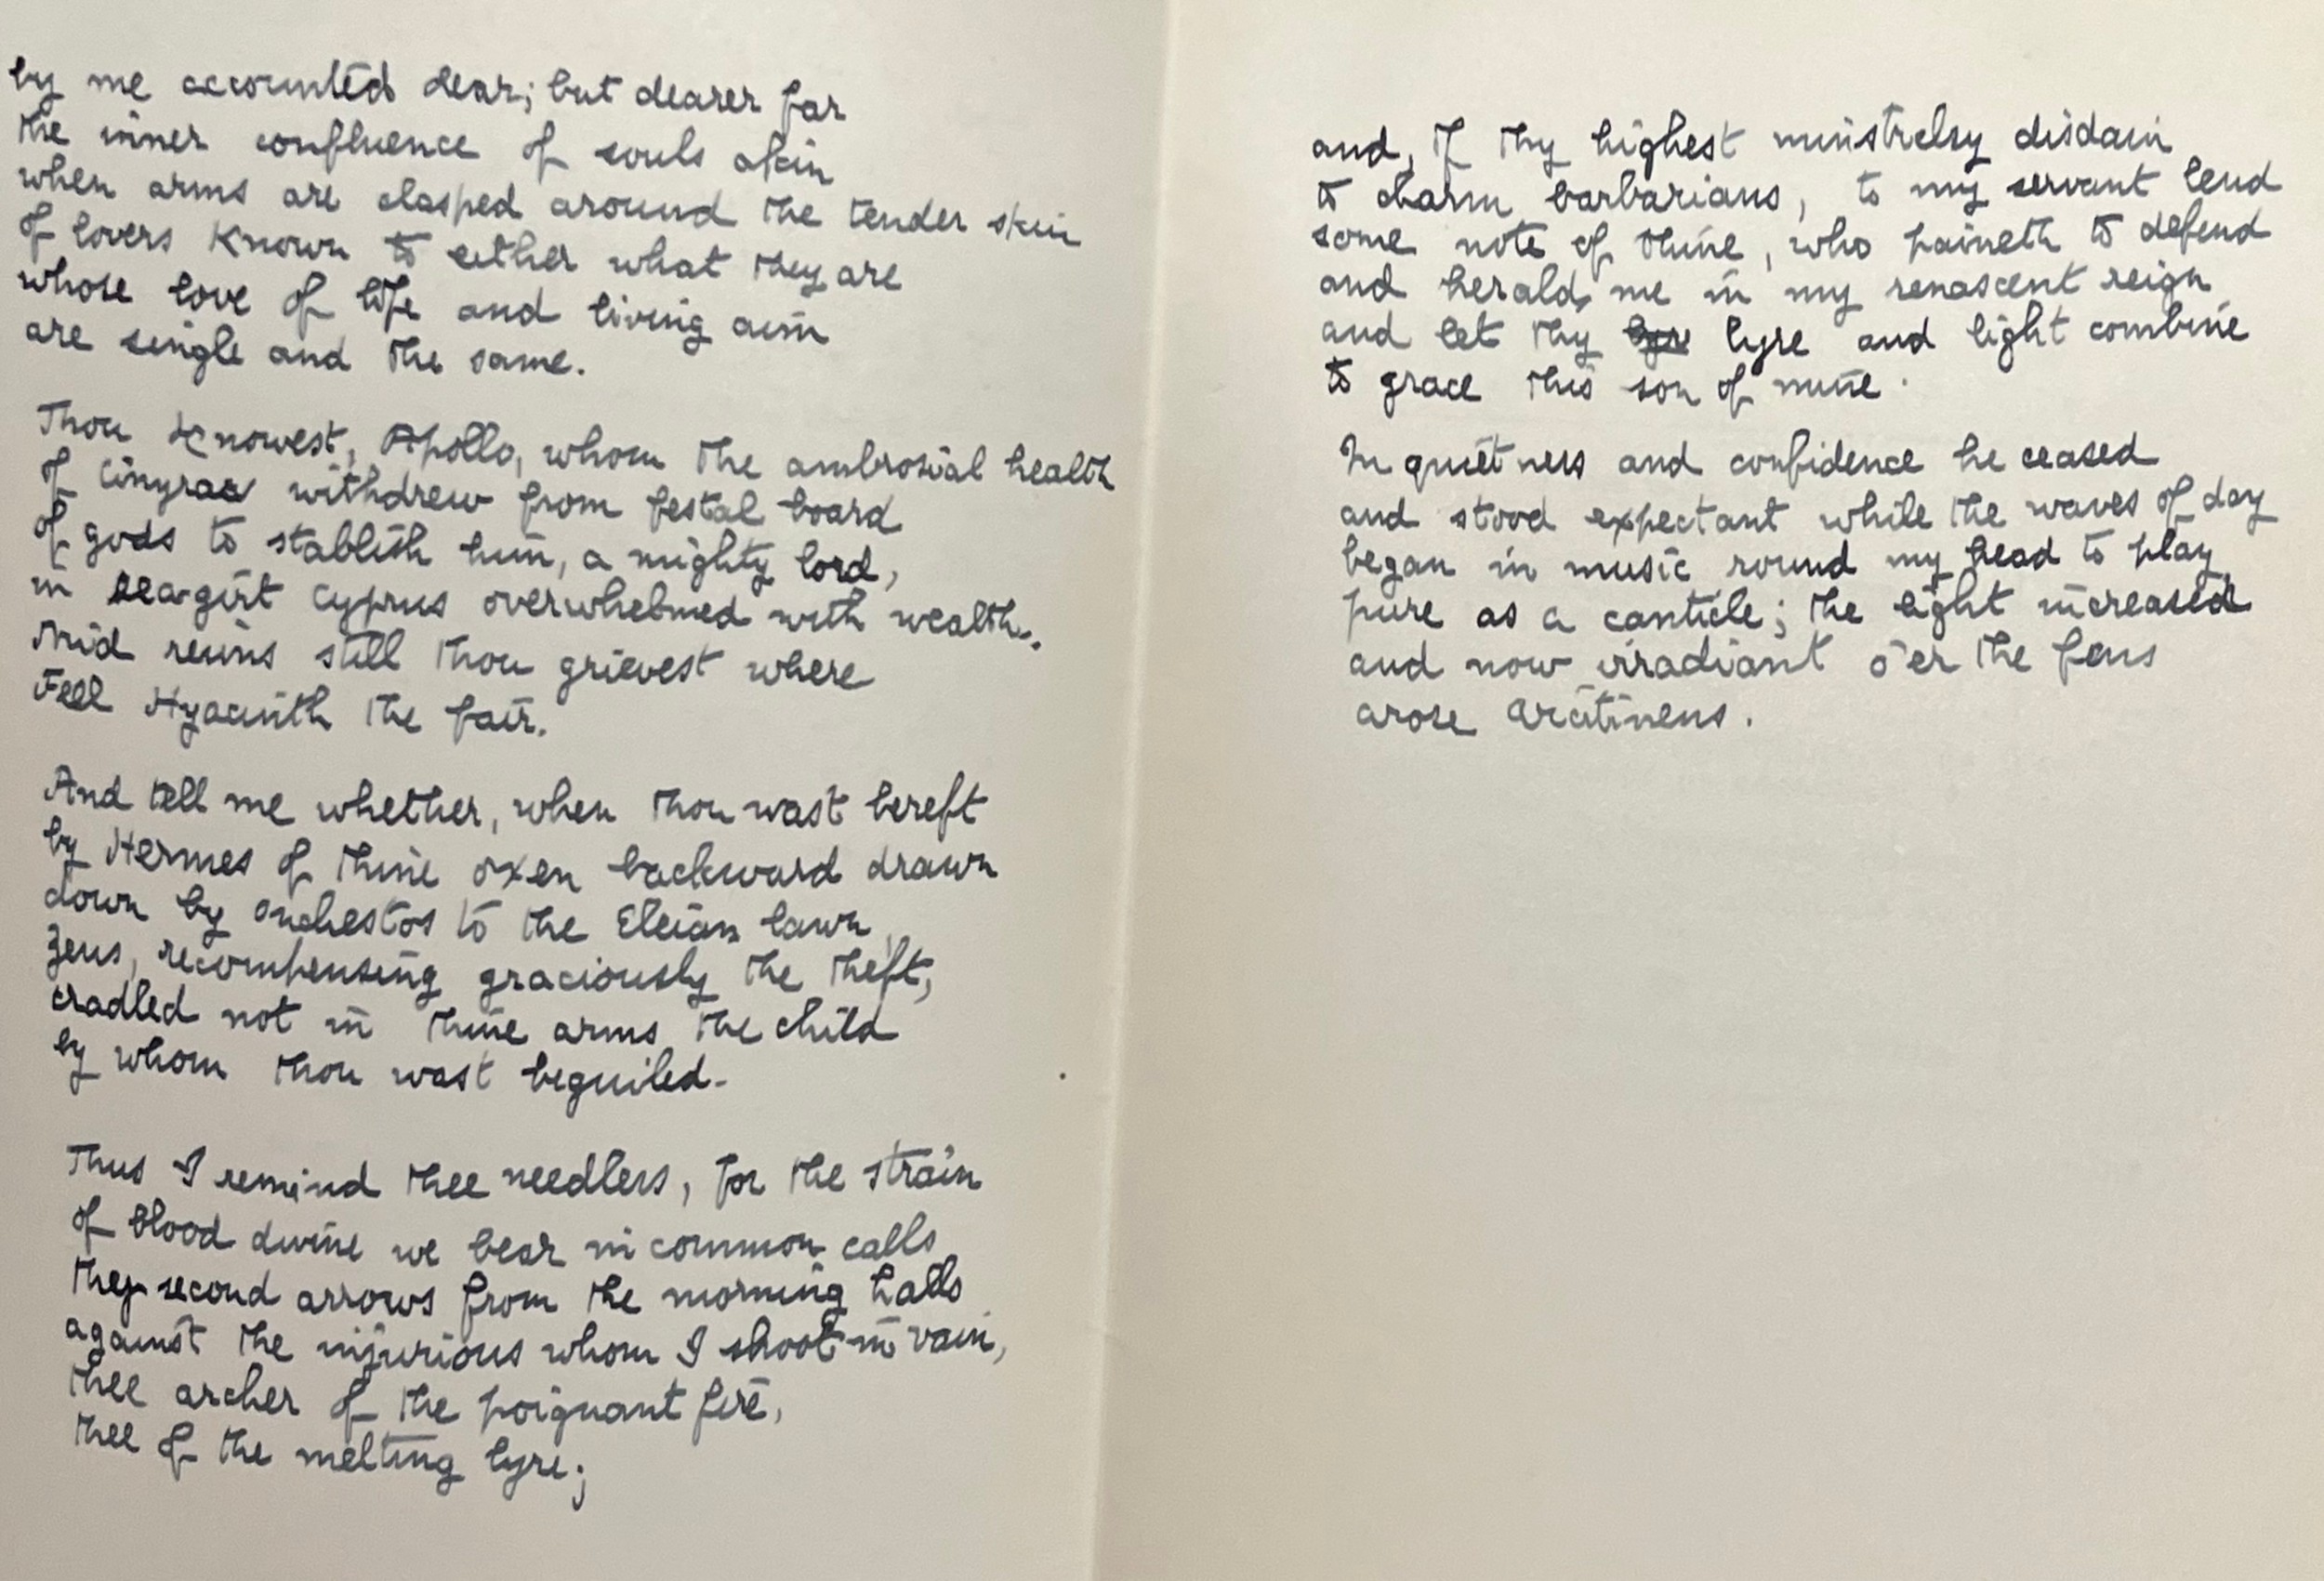 by me accounted dear; but dearer far
the inner confluence of souls akin
when arms are clasped around the tender skin
of lovers known to either what they are
whose love of life and living aim
are single and the same.
Thou knowest, Apollo, whom the ambrosial health
of Cinyras withdrew from festal board
of gods to stablish him, a mighty lord,
in sea-girt Cyprus overwhelmed with wealth.
Mid reins still thou grievest where
Fell Hyacinth the fair.
And tell me whether, when thou wast bereft
by Hermes of thine oxen backward drawn
down by Onchestos to the Eleian lawn,
Zeus, recompensing graciously the theft,
cradled not in thine arms the child
by whom thou wast beguiled.
Thus I remind thee needless, for the strain
of blood divine we bear in common calls
they second arrows from the morning halls
against the injurious whom I shoot in vain,
thee archer of the poignant fire,
thee of the melting lyre;
and, if thy highest minstrelsy disdain
to charm barbarians, to my servant lend
some note of thine, who paineth to defend
and herald me in my renascent reign
and let thy lyre and light combine
to grace this son of mine.
In quietness and confidence he ceased
and stood expectant while the waves of day
began in music round my head to play,
pure as a canticle; the light increased
and now irradiant o'er the fens
arose Arcitinens.